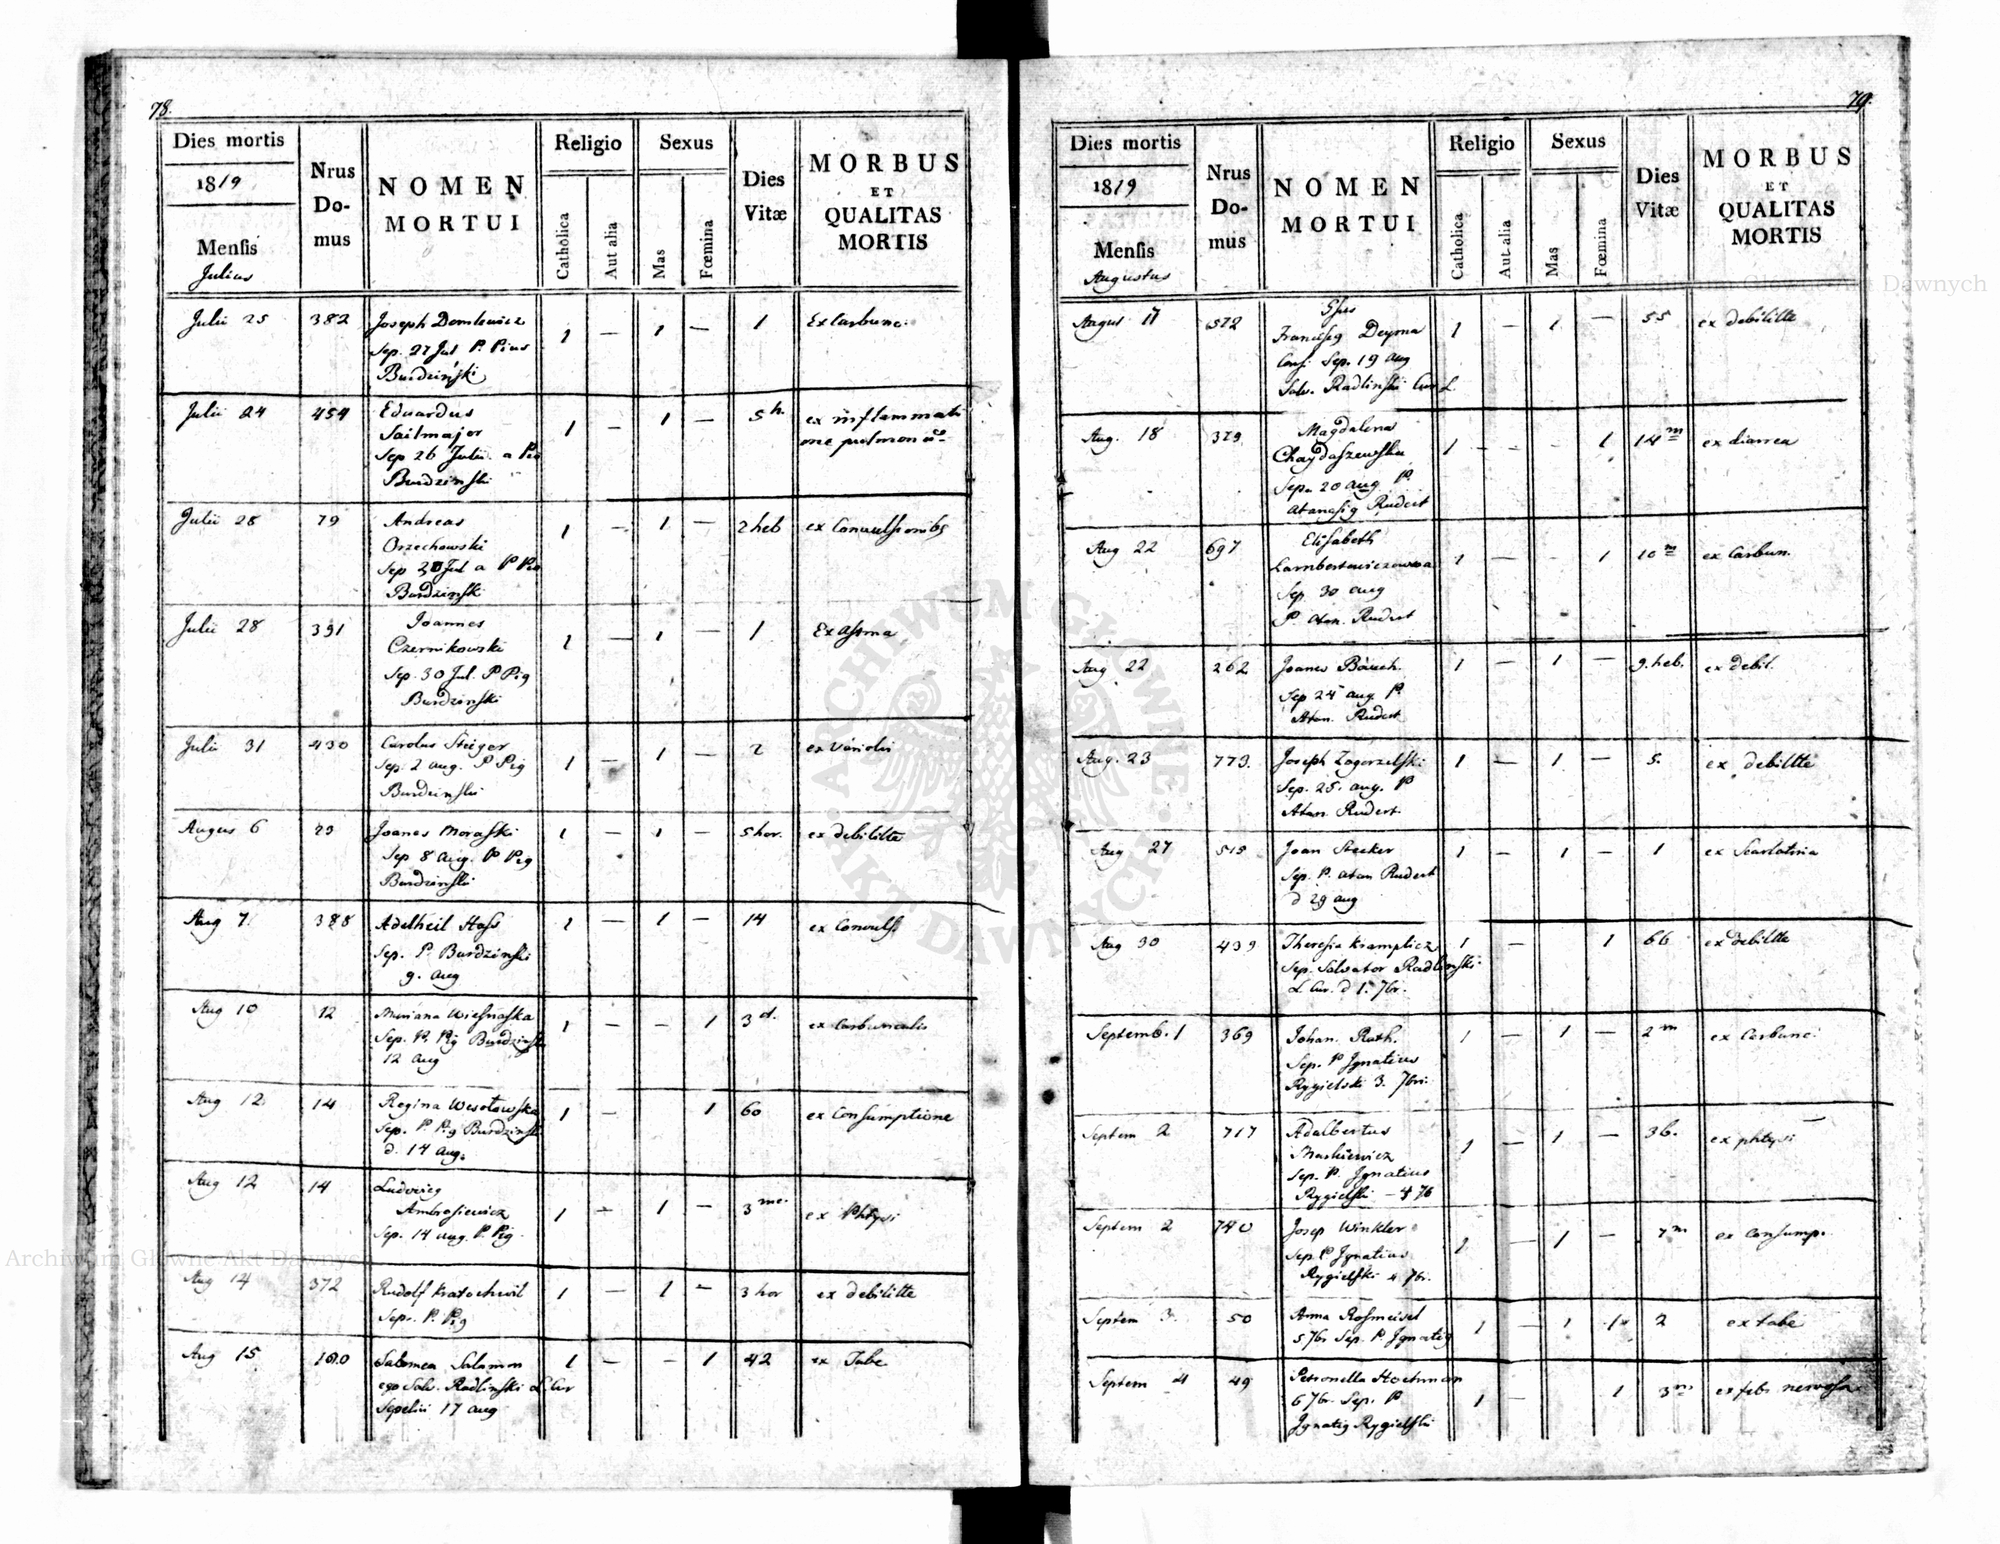 78.
Dies mortis
1819
Mensis
Julius
Nrus
Do-
mus
NOMEN
MORTUI
Religio
Catholica
Aut alia
Sexus
Mas
Fœmina
Dies
Vitæ
MORBUS
ET
QUALITAS
MORTIS
Julii 25 382 Joseph Demkowicz 1 — 1 — 1 Ex Carbunc:
Sep. 27 Jul P. Pius
Burdziński
Julii 24 454 Eduardus 1 — 1 — 5 h. ex inflammati
Sailmajor one pulmon
Sep 26 Julii a Pio
Burdzinski
Julii 28 79 Andreas 1 — 1 — 2 heb ex Convulsionibg
Orzechowski
Sep Jul a P Pio
Burdzinski
Julii 28 391 Joannes 1 — 1 — 1 Ex Asma
Czernikowski
Sep. 30 Jul. P Pig
Burdzinski
Julii 31 430 Carolus Steiger 1 — 1 — 2 ex Variolis
Sep. 2 aug. P Pig
Burdzinski
Augus 6 23 Joanes Moraski 1 — 1 — 5 hor. ex debilitte
Sep 8 aug. P Pig
Burdzinski
Aug 7. 388 Adelheil Hass 1 — 1 — 14 ex Convuls
Sep. P. Burdzinski
9. aug
Aug 10 12 Mariana Wiesnaska 1 — — 1 3 d. ex Carbunculis
Sep. P. Pig Burdzinski
12 aug
Aug 12. 14 Regina Wesoławska 1 — 1 60 ex Consumptione
Sep. P. Pig Burdzinski
d. 14 aug.
Aug 12 14 Ludwig 1 — 1 — 3 me. ex Phtysi
Ambrosiewicz
Sep. 14 aug. P. Pig.
Aug 14 372 Rudolf Kratochwil 1 — 1 — 3 hor ex debilitte
Sep. P. Pig
Aug 15 Salomea Salamon 1 — — 1 42 ex Tabe
ego Salv. Radlinski L Cur
Sepelivi 17 aug
79.
Dies mortis
1819
Mensis
Augustus
Nrus
Do-
mus
NOMEN
MORTUI
Religio
Catholica
Aut alia
Sexus
Mas
Fœmina
Dies
Vitæ
MORBUS
ET
QUALITAS
MORTIS
August 17 572 1 — 1 — 55 ex debilitte
Francisg Deyma
Consi. Sep. 19 aug
Salv. Radlinski Cur L.
Aug. 18 329. Magdalena 1 — — 1 14 m ex diarrea
Chaydaszewska
Sep. 20 aug P.
Atanasig Rudert
Aug 22 697 Elisabeth 1 — — 1 10 m ex Carbun.
Lambertowiczowna
Sep. 30 aug
P. Atan. Rudert
Aug 22 262 Joanes Bauch. 1 — 1 — 9. heb. ex debil.
Sep 24 aug. P.
Atan. Rudert
Aug. 23 773. Joseph Zagorzelski 1 — 1 — 5. ex debiltte
Sep. 25. aug. P
Atan. Rudert.
Aug 27 515 Joan Stecker 1 — 1 — 1 ex Scarlatina
Sep. P. Atan Rudert
d 29 aug
Aug 30 439 Theresia Kramplicz 1 — 1 66 ex debiltte
Sep. Salvator Radlinski
L. Cur. d 1. 7br.
Septemb. 1 369 Johan. Rath. 1 — 1 — 2 m ex Carbunc:
Sep. P Ignatius
Rygielski 3. 7bri.
Septem 2 717 Adalbertus 1 — 1 — 36. ex phtysi
Maskiewicz
Sep. P. Ignatius
Rygielski — 4 7b
Septem 2 740 Josep Winkler 1 — 1 — 7 m ex Consump.
Sep. P Ignatius
Rygielski 4 7br.
Septem 3. 50 Anna Rosmeisel 1 — 1 1 2 ex tabe
5 7br Sep. P. Ignatig
Septem 4 49 Petronella Hochman 1 — 1 3 m ex febr. nervosa
6 7br. Sep. P
Ignatig Rygielski
Archiwum Główne Akt Dawnych
Archiwum Główne Akt Dawnych
ARCHIWUM GŁÓWNE
AKT DAWNYCH